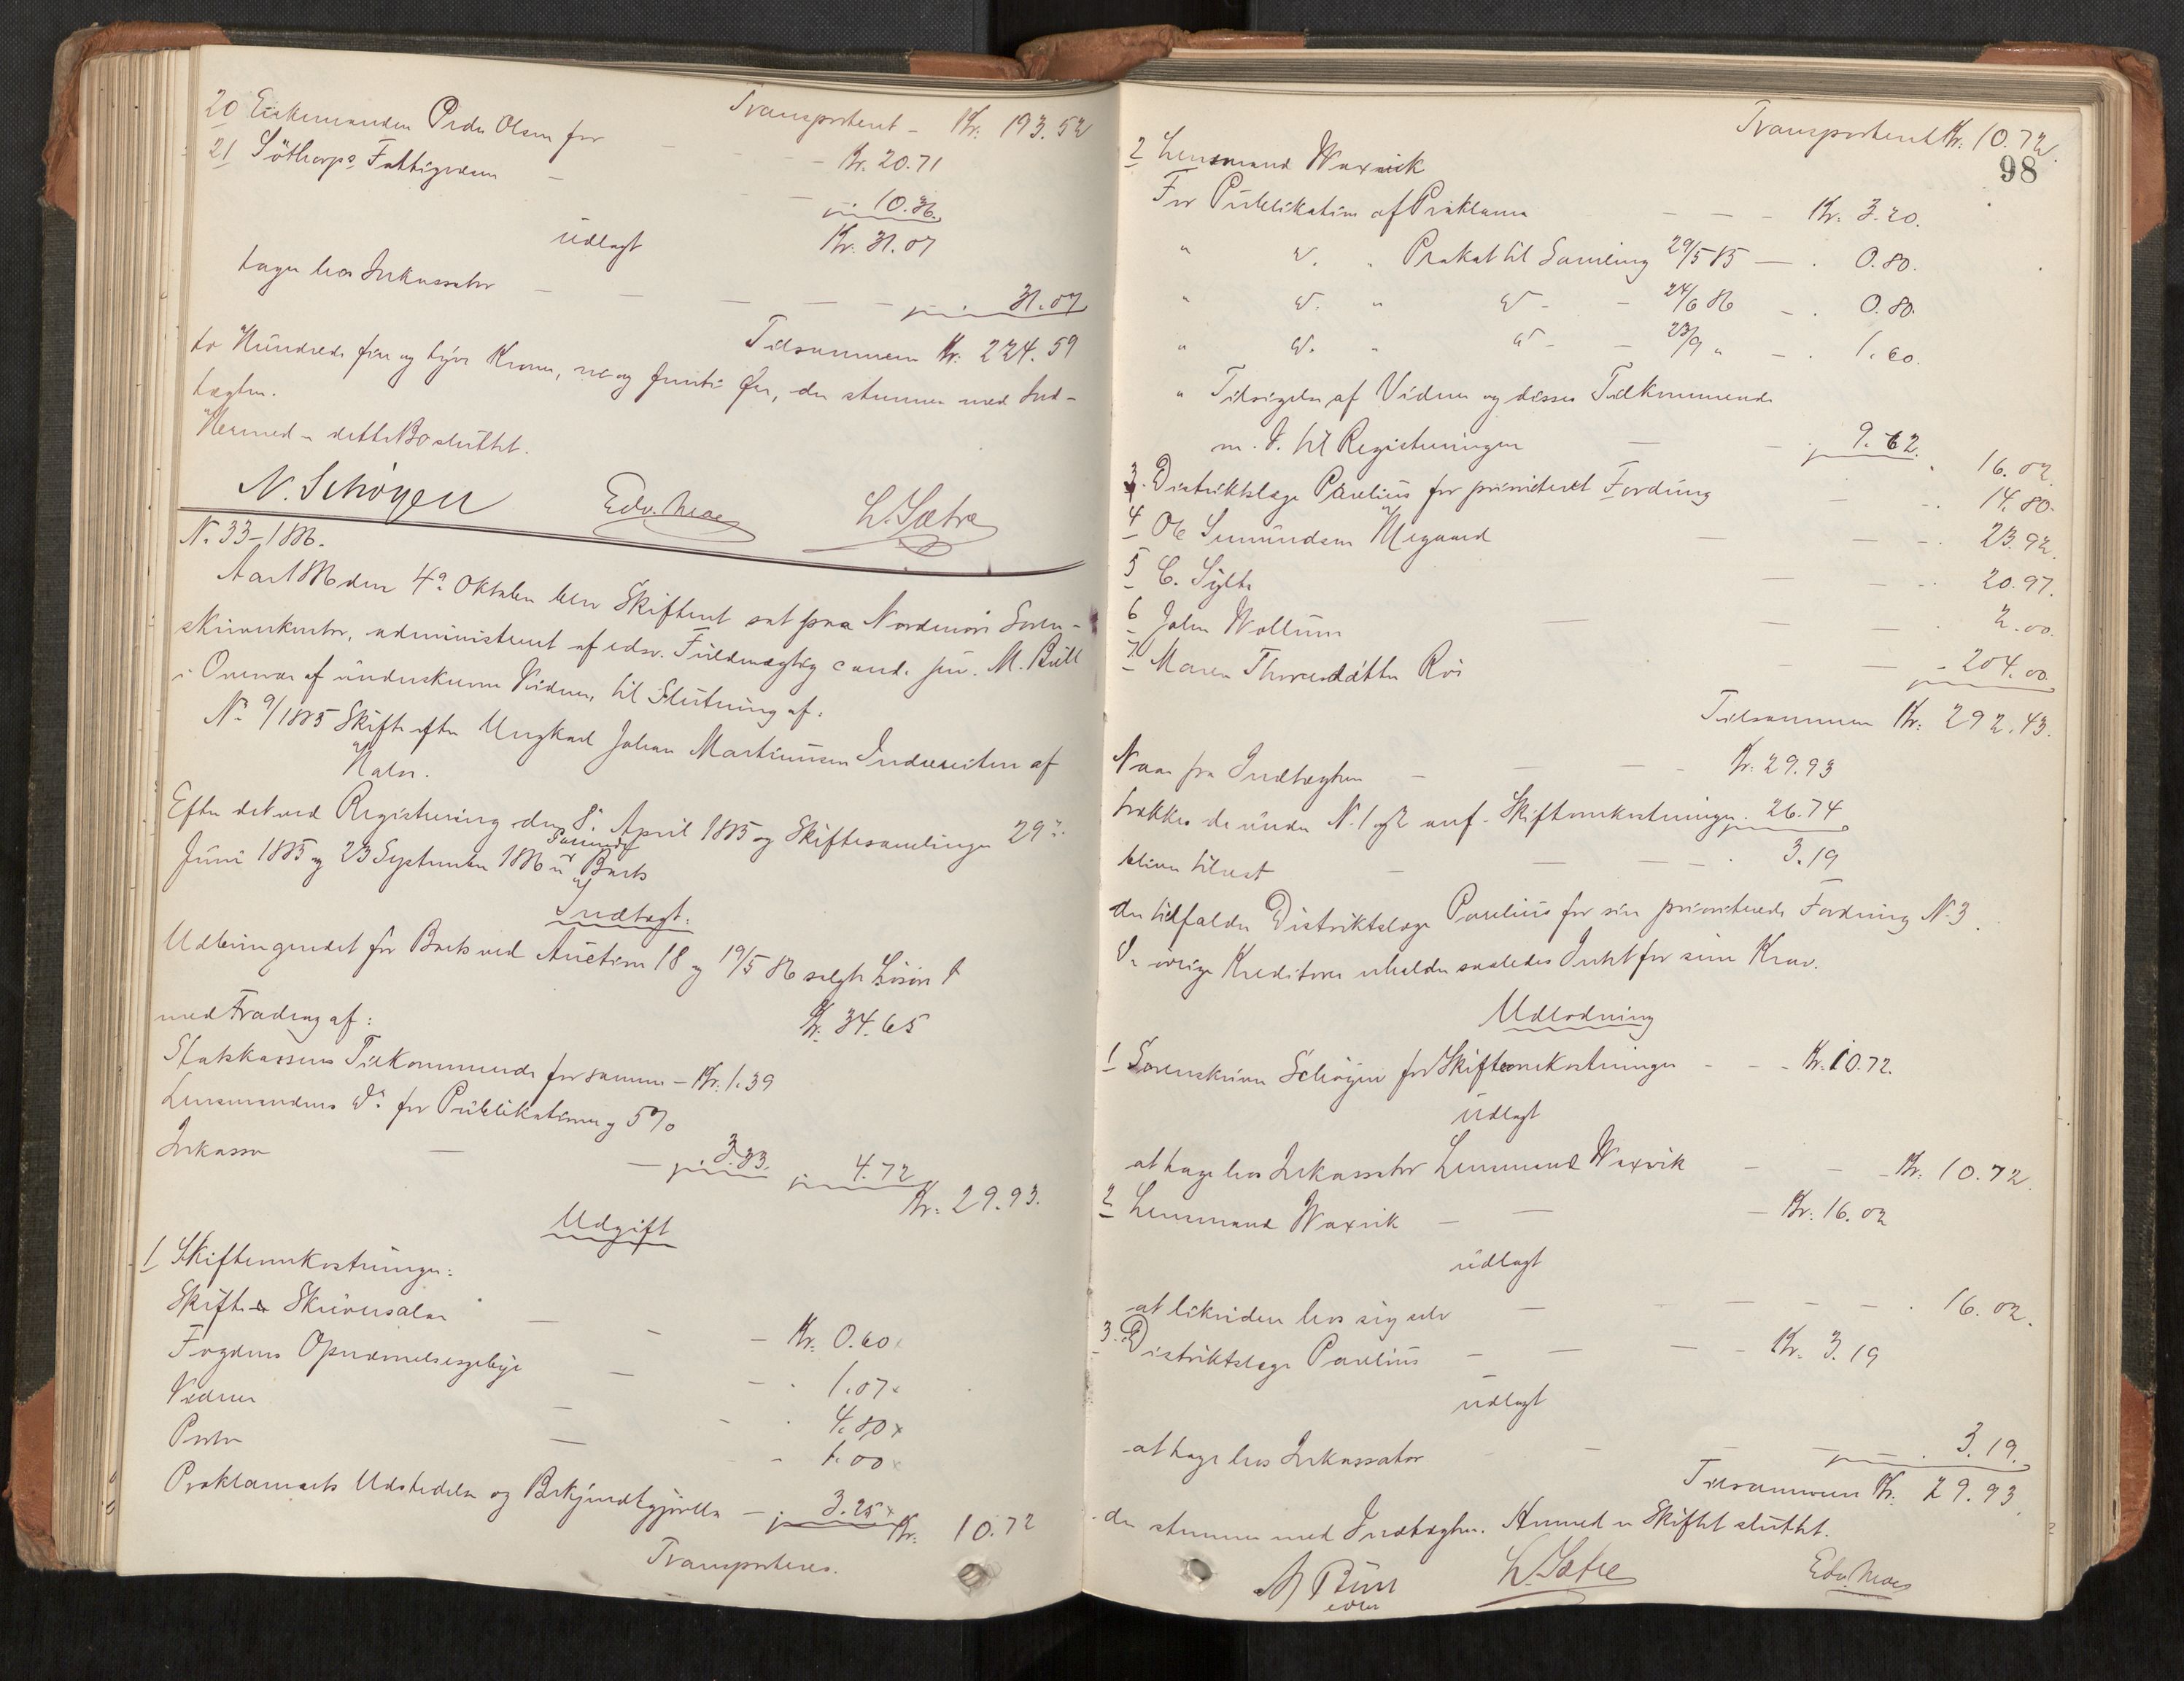 Transporteret - Kr. 193.52
20 Peder Olsen for - - Kr. 20.71
21 Fattigvæsen - - 10.36
udlagt Kr. 31.07
tages hos Inkassator - - - - - 31.07
Tilsammen Kr. 224.59
to Hundrede fire og tyve Kroner, ni og femti Øre, der stemmer med Ind-
tægten.
Hermed er dette Bo sluttet.
N. Schøyen Edv. Moes L. Sætre
N. 33-1886.
Aar 1886 den 4de Oktober blev Skifteret sat paa Nordmøre Soren-
skriverkontor, administreret af edsv. Fuldmægtig cand. jur. M. Bull
i Overvær af underskrevne Vidner, til Slutning af:
No 9/1885 Skifte efter Ungkarl Johan Martinusen Indresiten af
Halsn.
Efter det ved Registrering den 8de April 1885 og Skiftesamlinger 29de
Juni 1885 og 23 September 1886 er Boets
Indtægt:
Udbringendet for Boets ved Auktion 18 og 19/5 86 solgte Løsøre
Kr. 34.65
med Fradrag af:
Statskassens Tilkommende for samme - Kr. 1.39
Lensmandens Do for Publikation og 5%
Inkasso - - 3.33. 4.72
Kr. 29.93.
Udgift
1 Skifteomkostninger:
Skifte Skriversalær - - - Kr. 0.60
Fogdens Opnævnelsesgebyr - - 1.07
Vidner - - 4.80
Porto - - 1.00
Proklamaets Udstedelse og Bekjendtgjørelse - 3.25 Kr. 10.72
Transporteres.
Transporteret Kr. 10.72.
98
2 Lensmand Waxvik
For Publikation af Proklama - - - Kr. 3.20.
" D. " Plakat til Samling 29/5 85 - . 0.80.
" D. " D - - 24/6 86 - . 0.80.
" D. " D - - 23/9 " - . 1.60.
" Tilsigelse af Vidner og disses Tilkommende
m. V. til Registreringen - - 9.62. 16.02
3. Distriktslæge Parelius for prioriteret Fordring - - . 14.80.
4 Ole Megaard - - - . 23.92.
5 C. Sylte - - - . 20.97.
6 John Wollum - - - . 2.00.
7 Maren Thoresdatter Røs - - - 204.00.
Tilsammen Kr. 292.43.
Naar fra Indtægten - - - Kr. 29.93
trækkes de under N. 1 og 2 anf. Skifteomkostninger . 26.74
bliver tilrest - - - . 3.19
der tilfalder Distriktslæge Parelius for sin prioriterede Fordring N. 3.
De øvrige Kreditorer erholder saaledes Intet for sine Krav.
Udlodning
1 Sorenskriver Schøyen for Skifteomkostninger - - - Kr. 10.72.
udlagt
at tage hos Inkassator Lensmand Waxvik - - - Kr. 10.72.
2 Lensmand Waxvik - - - Kr. 16.02
udlagt
at likvidere hos sig selv - - - . 16.02.
3. Distriktslæge Parelius - - - - Kr. 3.19
udlagt
at tage hos Inkassator - - - - . 3.19.
Tilsammen Kr. 29.93.
der stemmer med Indtægten. Hermed er Skiftet sluttet.
M Bull L. Sætre Edv. Moes
edsv